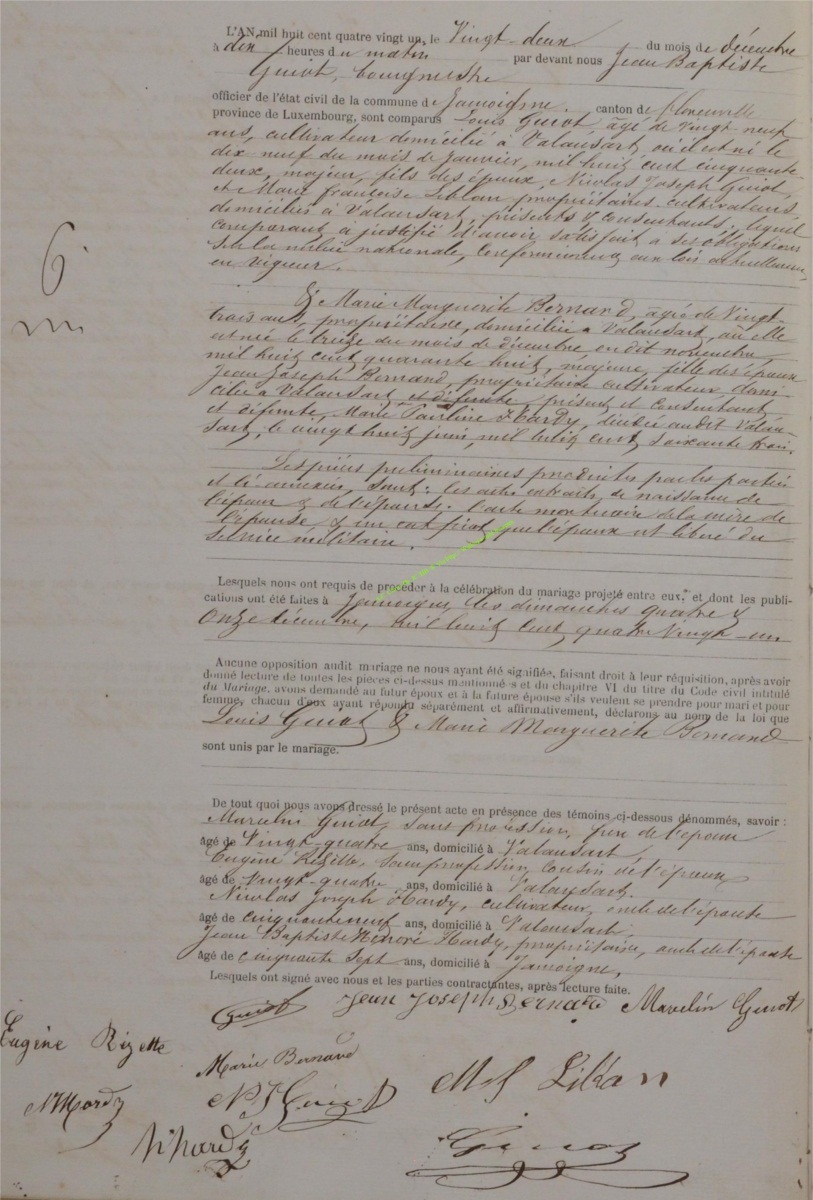 L'AN mil huit cent quatre vingt un, le Vingt-deux du mois de décembre
à dix heures du matin par devant nous Jean Baptiste
Guiot, bourgmestre
officier de l'état civil de la commune de Jamoigne, canton de Florenville
province de Luxembourg, sont comparus Louis Guiot âgé de vingt neuf
ans, cultivateur domicilié à Valansart, où il est né le
dix neuf du mois de Janvier, mil huit cent cinquante
deux, majeur, fils des époux, Nicolas Joseph Guiot,
et Marie françoise Leblan propriétaires cultivateurs,
domiciliés à Valansart, présents & consentants, lequel
comparant à justifié d'avoir satisfait à ses obligations
de la milice nationale, Conformément aux lois actuellement
en vigueur.
6
& Marie Marguerite Bernard, âgée de Vingt
trois ans, propriétaire, domiciliée à Valansart, où elle
est née le treize du mois de décembre en dit novembre,
mil huit cent quarante huit, majeure, fille des époux
Jean Joseph Bernard, propriétaire cultivateur domi-
cilié à Valansart et défunte, présent et consentant
et défunte, Marie Pauline Hardy, décédée audit Valan-
sart, le vingt huit juin, mil huit cent soixante trois.
Les pièces préliminaires produites par les parties
et ci annexées, sont: les actes extraits de naissance de
l'époux & de l'épouse. l'acte mortuaire de la mère de
l'épouse, & un certificat que l'époux est libéré du
service militaire.
Lesquels nous ont requis de procéder à la célébration du mariage projeté entre eux, et dont les publi-
cations ont été faites à Jamoigne, les dimanches quatre &
Onze décembre, mil huit cent quatre Vingt-un
Aucune opposition audit mariage ne nous ayant été signifiée, faisant droit à leur réquisition, après avoir
donné lecture de toutes les pièces ci-dessus mentionnées et du chapitre VI du titre du Code civil intitulé
du Mariage, avons demandé au futur époux et à la future épouse s'ils veulent se prendre pour mari et pour
femme, chacun d'eux ayant répondu séparément et affirmativement, déclarons au nom de la loi que
Louis Guiot & Marie Marguerite Bernard
sont unis par le mariage.
De tout quoi nous avons dressé le présent acte en présence des témoins ci-dessous dénommés, savoir :
Marcelin Guiot, sans profession, frère de l'époux
âgé de Vingt-quatre ans, domicilié à Valansart
Eugène Rizette, sans profession, cousin de l'époux
âgé de Vingt-quatre ans, domicilié à Valansart.
Nicolas Joseph Hardy, cultivateur, oncle de l'épouse
âgé de cinquante neuf ans, domicilié à Valansart.
Jean Baptiste Honoré Hardy, propriétaire, oncle de l'épouse
âgé de cinquante sept ans, domicilié à Jamoigne,
Lesquels ont signé avec nous et les parties contractantes, après lecture faite.
Guiot Jean Joseph Bernard Marcelin Guiot
Eugène Rizette Marie Bernard
NJ Guiot
NHardy
h hardy
Guiot